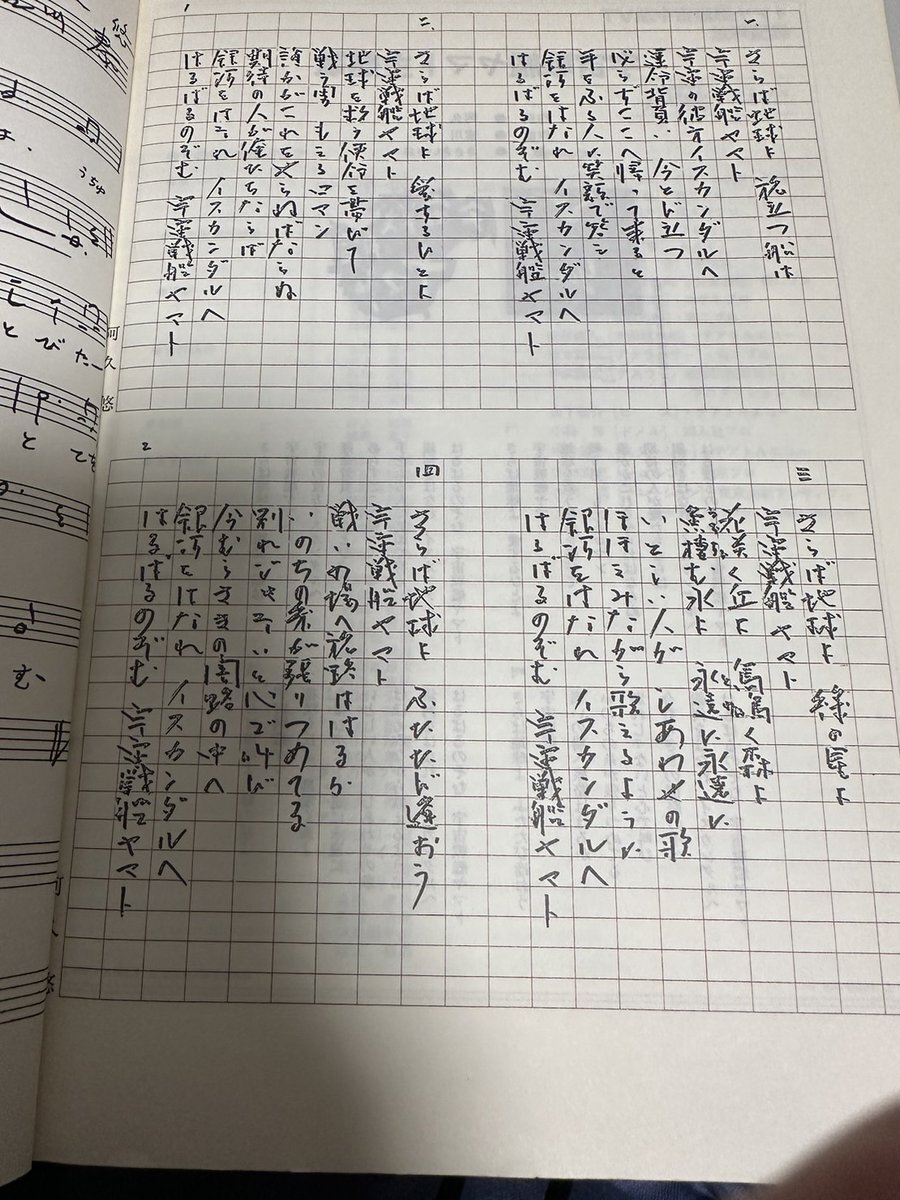 1
一、
さらば地球よ 旅立つ船は
宇宙戦艦ヤマト
宇宙の彼方イスカンダルへ
運命背負い 今とび立つ
必らずここへ帰って来ると
手をふる人に笑顔で答え
銀河をはなれ イスカンダルへ
はるばるのぞむ 宇宙戦艦ヤマト
二、
さらば地球よ 愛するひとよ
宇宙戦艦ヤマト
地球を救う使命を帯びて
戦う男 もえるロマン
誰かがこれをやらねばならぬ
期待の人が俺たちならば
銀河をはなれ イスカンダルへ
はるばるのぞむ 宇宙戦艦ヤマト
阿久 悠
2
三
さらば地球よ 緑の星よ
宇宙戦艦ヤマト
花咲く丘よ 鳥鳴く森よ
魚棲む水よ 永遠に永遠に
いとしい人が しあわせの歌
ほほえみながら歌えるように
銀河をはなれ イスカンダルへ
はるばるのぞむ 宇宙戦艦ヤマト
四
さらば地球よ ふたたび逢おう
宇宙戦艦ヤマト
戦いの場へ旅路ははるか
いのちの糸が張りつめてる
別れじゃないと心で叫び
今むらさきの闇路の中へ
銀河をはなれ イスカンダルへ
はるばるのぞむ 宇宙戦艦ヤマト
うちゅ
とびたー